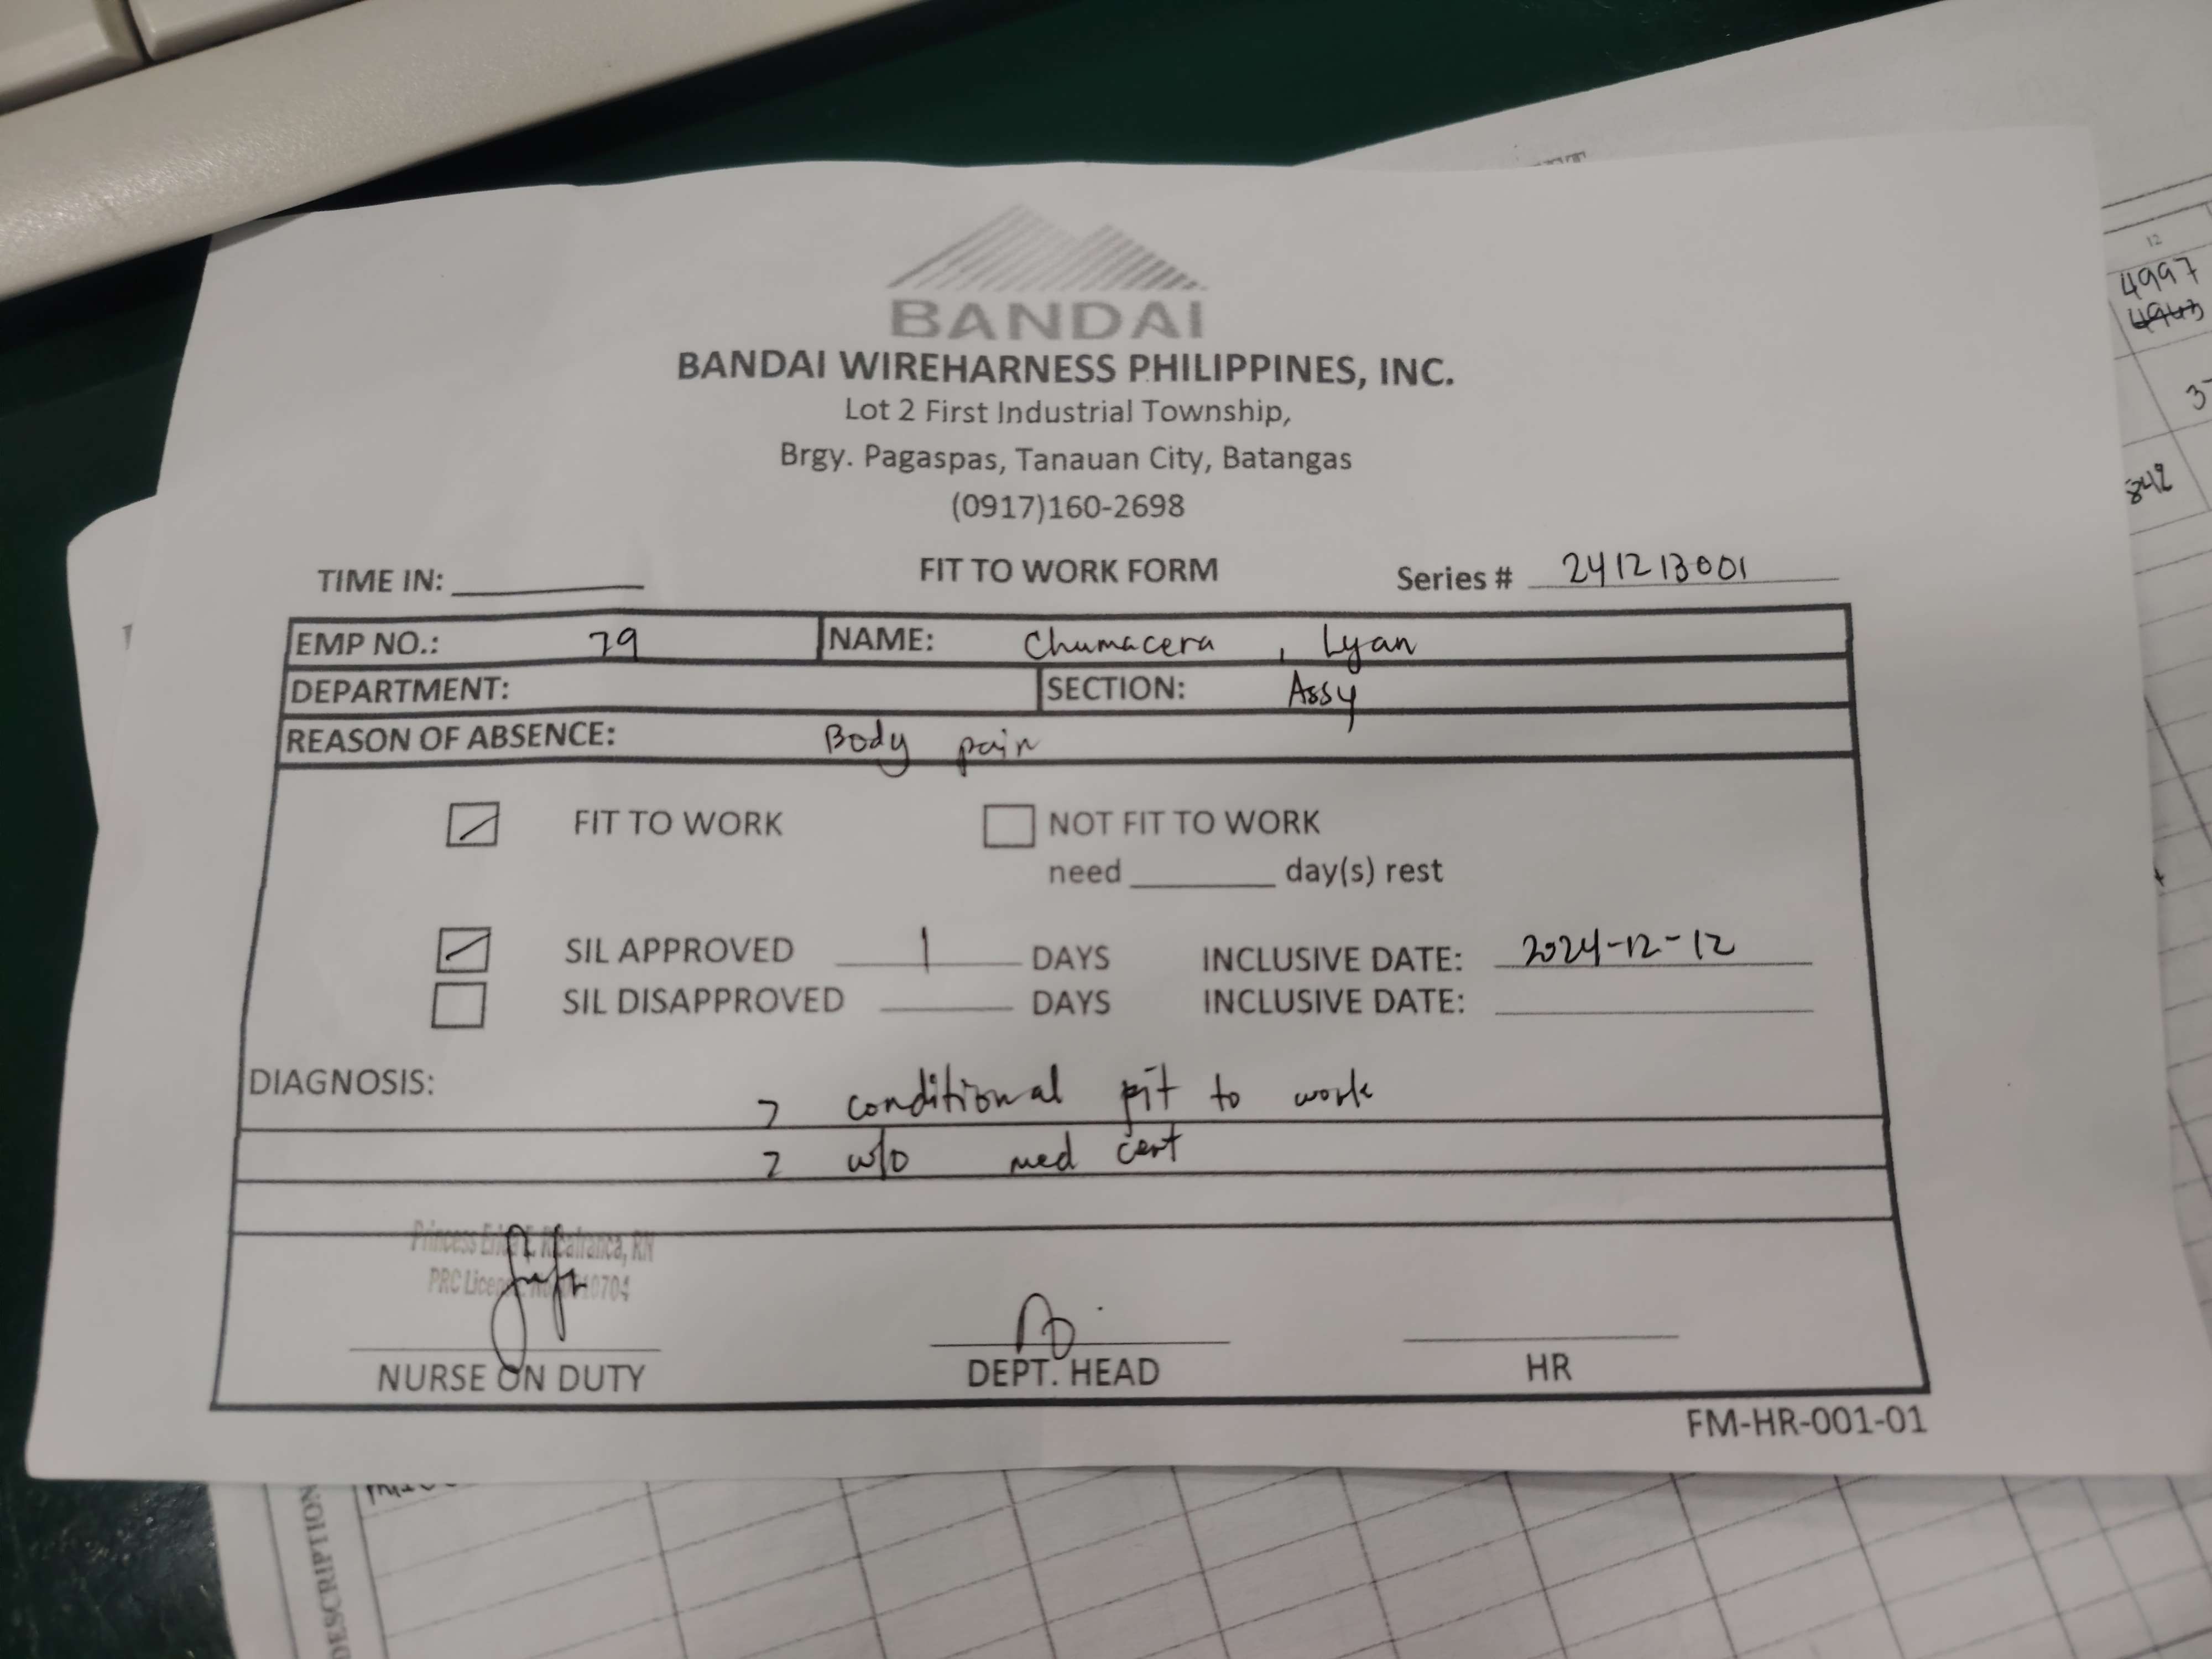 BANDAI
BANDAI WIREHARNESS PHILIPPINES, INC.
Lot 2 First Industrial Township,
Brgy. Pagaspas, Tanauan City, Batangas
(0917)160-2698
TIME IN: FIT TO WORK FORM Series # 241213001
EMP NO.: 79 NAME: Chumacera , Lyan
DEPARTMENT: SECTION: Assy
REASON OF ABSENCE: Body pain
FIT TO WORK NOT FIT TO WORK
need day(s) rest
SIL APPROVED 1 DAYS INCLUSIVE DATE: 2024-12-12
SIL DISAPPROVED DAYS INCLUSIVE DATE:
DIAGNOSIS: > conditional fit to work
> w/o med cert
Princess RN
PRC
NURSE ON DUTY DEPT. HEAD HR
FM-HR-001-01
DESCRIPTION
12
4997
4943
842